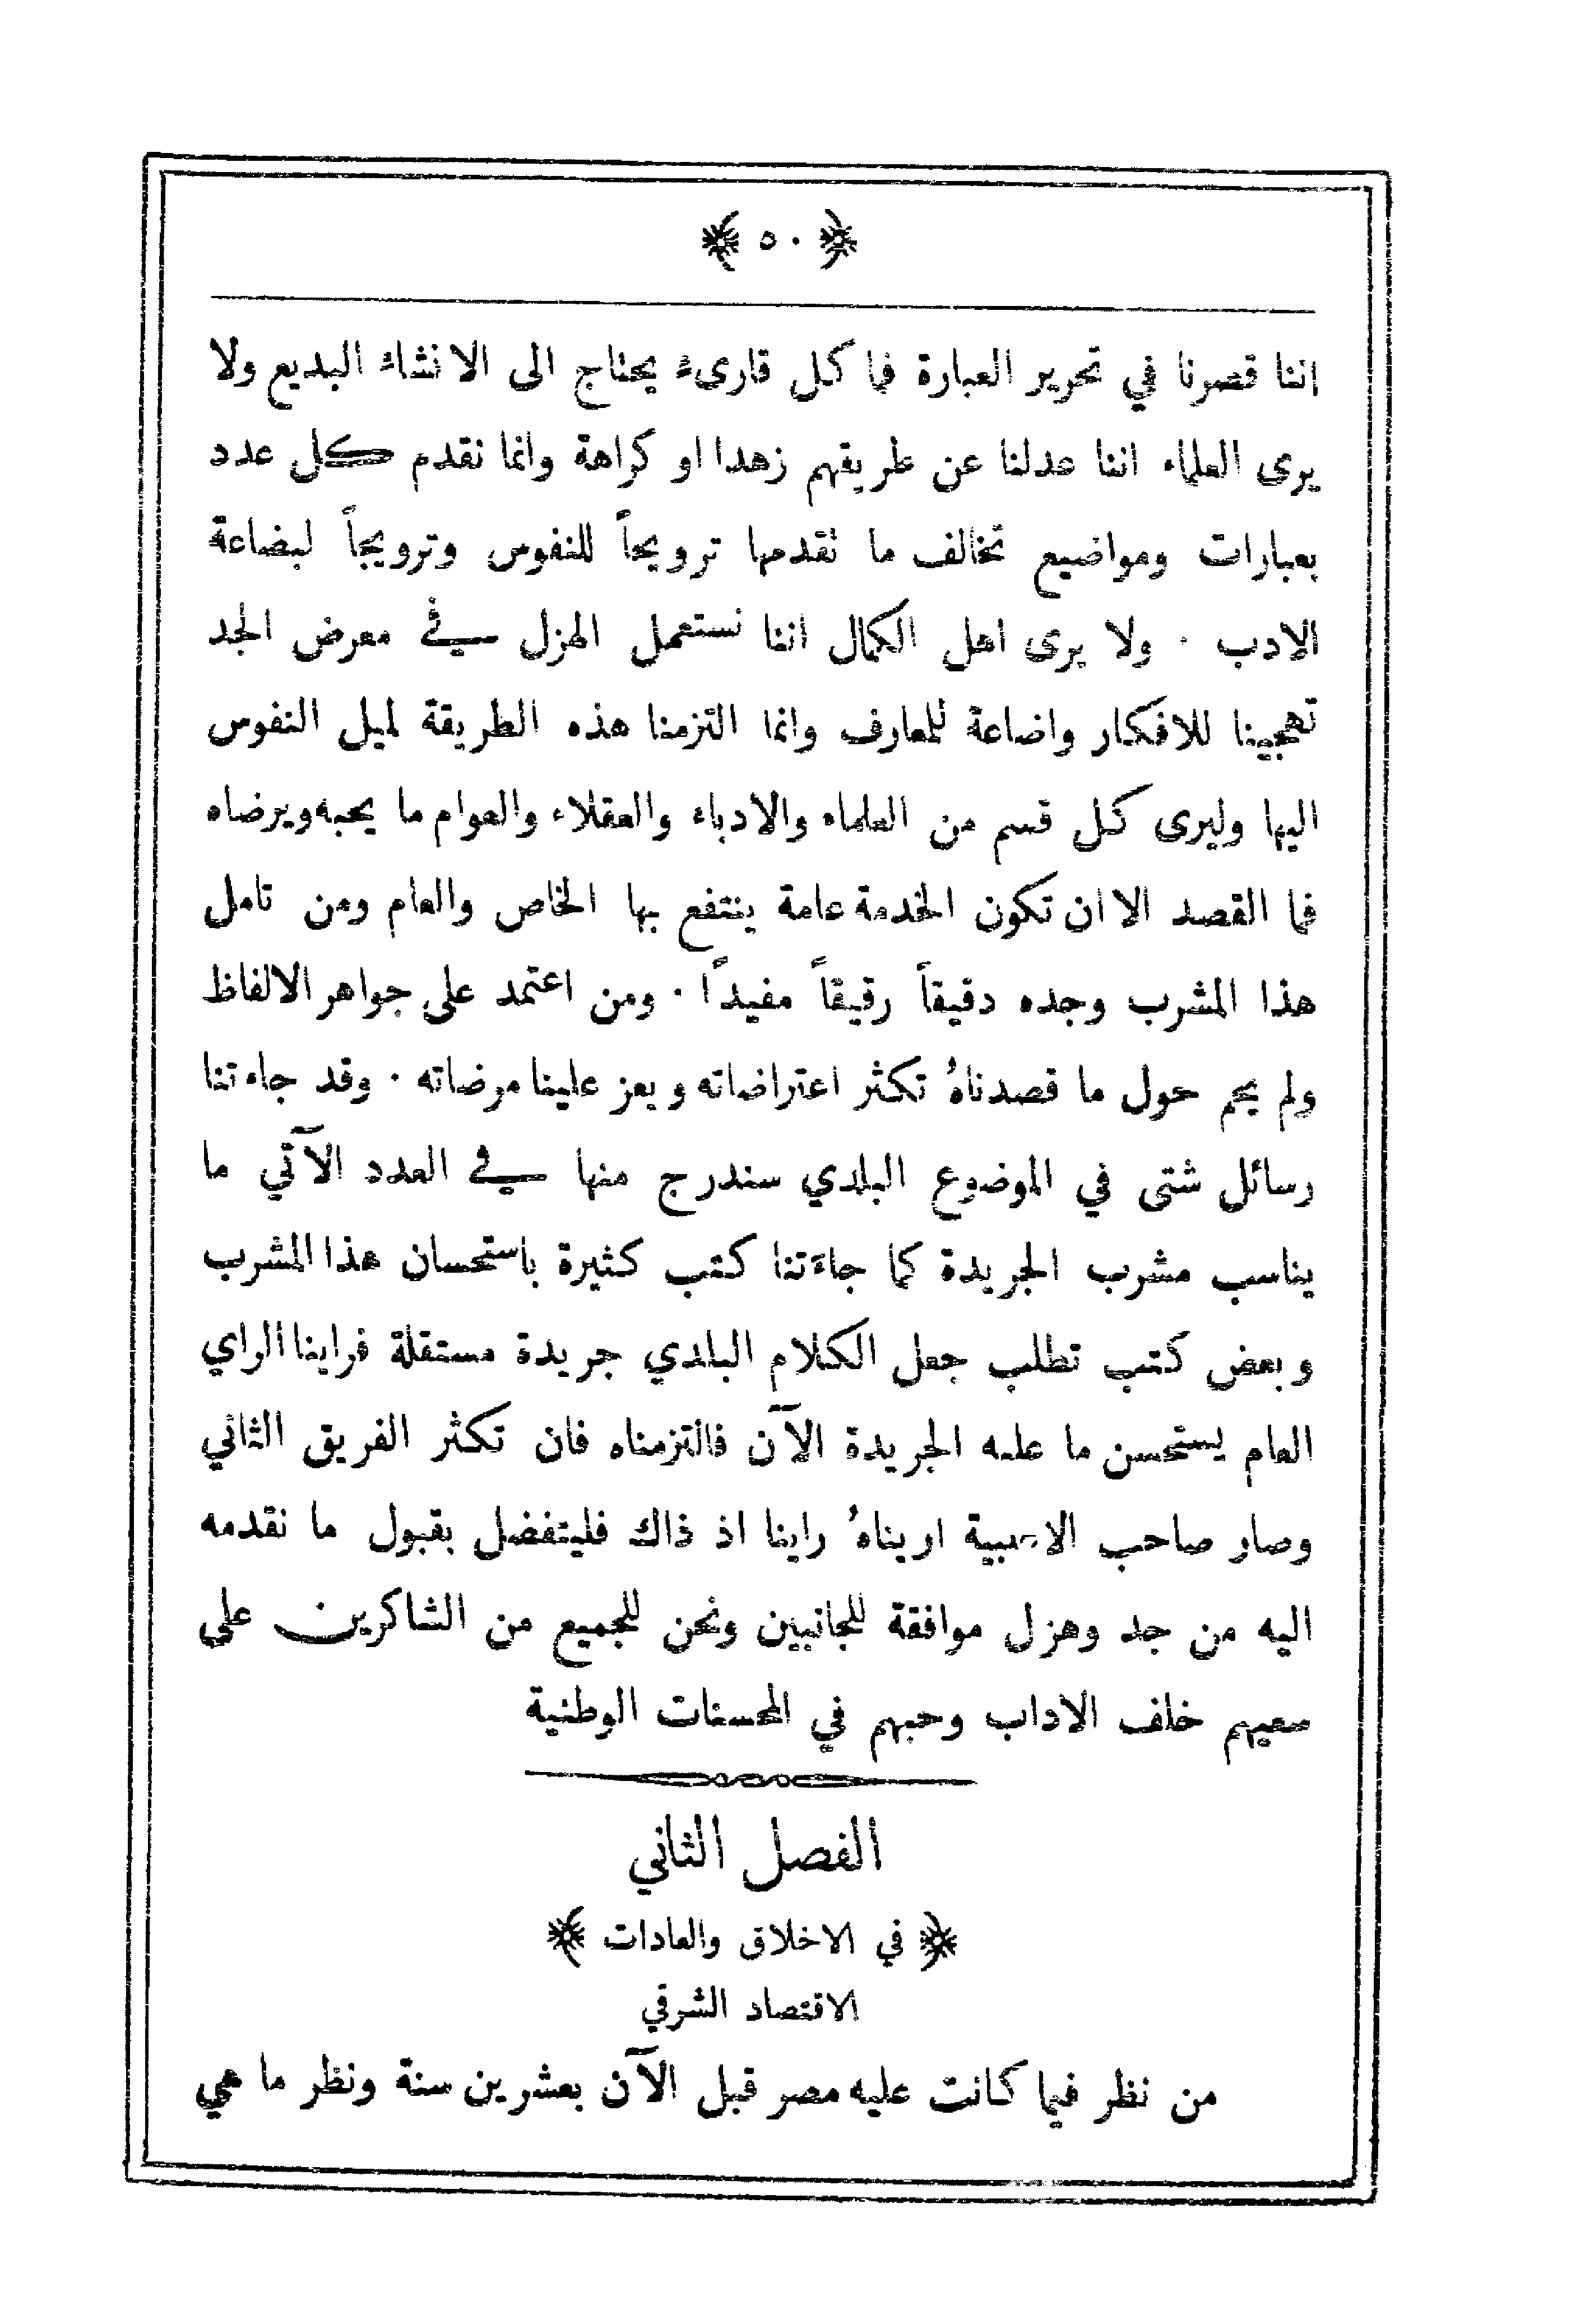 ﴿ ٥٠ ﴾
اننا قصرنا في تحرير العبارة فما كل قارىء يحتاج الى الانشاء البديع ولا
يرى العلماء اننا عدلنا عن طريقهم زهدا او كراهة وانما نقدم كل عدد
بعبارات ومواضيع تخالف ما تقدمها ترويحاً للنفوس وترويجاً لبضاعة
الادب ٠ ولا يرى اهل الكمال اننا نستعمل الهزل في معرض الجد
تهجينا للافكار واضاعة للمعارف وانما التزمنا هذه الطريقة لميل النفوس
اليها وليرى كل قسم من العلماء والادباء والعقلاء والعوام ما يحبه ويرضاه
فما القصد الا ان تكون الخدمة عامة ينتفع بها الخاص والعام ومن تامل
هذا المشرب وجده دقيقاً رقيقاً مفيداً ٠ ومن اعتمد على جواهر الالفاظ
ولم يحم حول ما قصدناهُ تكثر اعتراضاته ويعز علينا مرضاته ٠ وقد جاءتنا
رسائل شتى في الموضوع البلدي سندرج منها في العدد الآتي ما
يناسب مشرب الجريدة كما جاءتنا كتب كثيرة باستحسان هذا المشرب
وبعض كتب تطلب جعل الكلام البلدي جريدة مستقلة فراينا الراي
العام يستحسن ما عليه الجريدة الآن فالتزمناه فان تكثر الفريق الثاني
وصار صاحب اريناهُ راينا اذ ذاك فليتفضل بقبول ما نقدمه
اليه من جد وهزل موافقة للجانبين ونحن للجميع من الشاكرين على
سعيهم خلف الاداب وحبهم في المحسنات الوطنية
الفصل الثاني
﴿ في الاخلاق والعادات ﴾
الاقتصاد الشرقي
من نظر فيما كانت عليه مصر قبل الآن بعشرين سنة ونظر ما هي